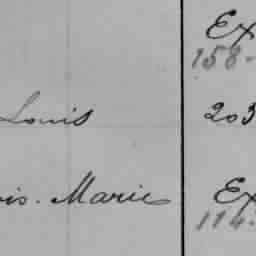 Ex
158-
Louis 203
is. Marie Ex
114-